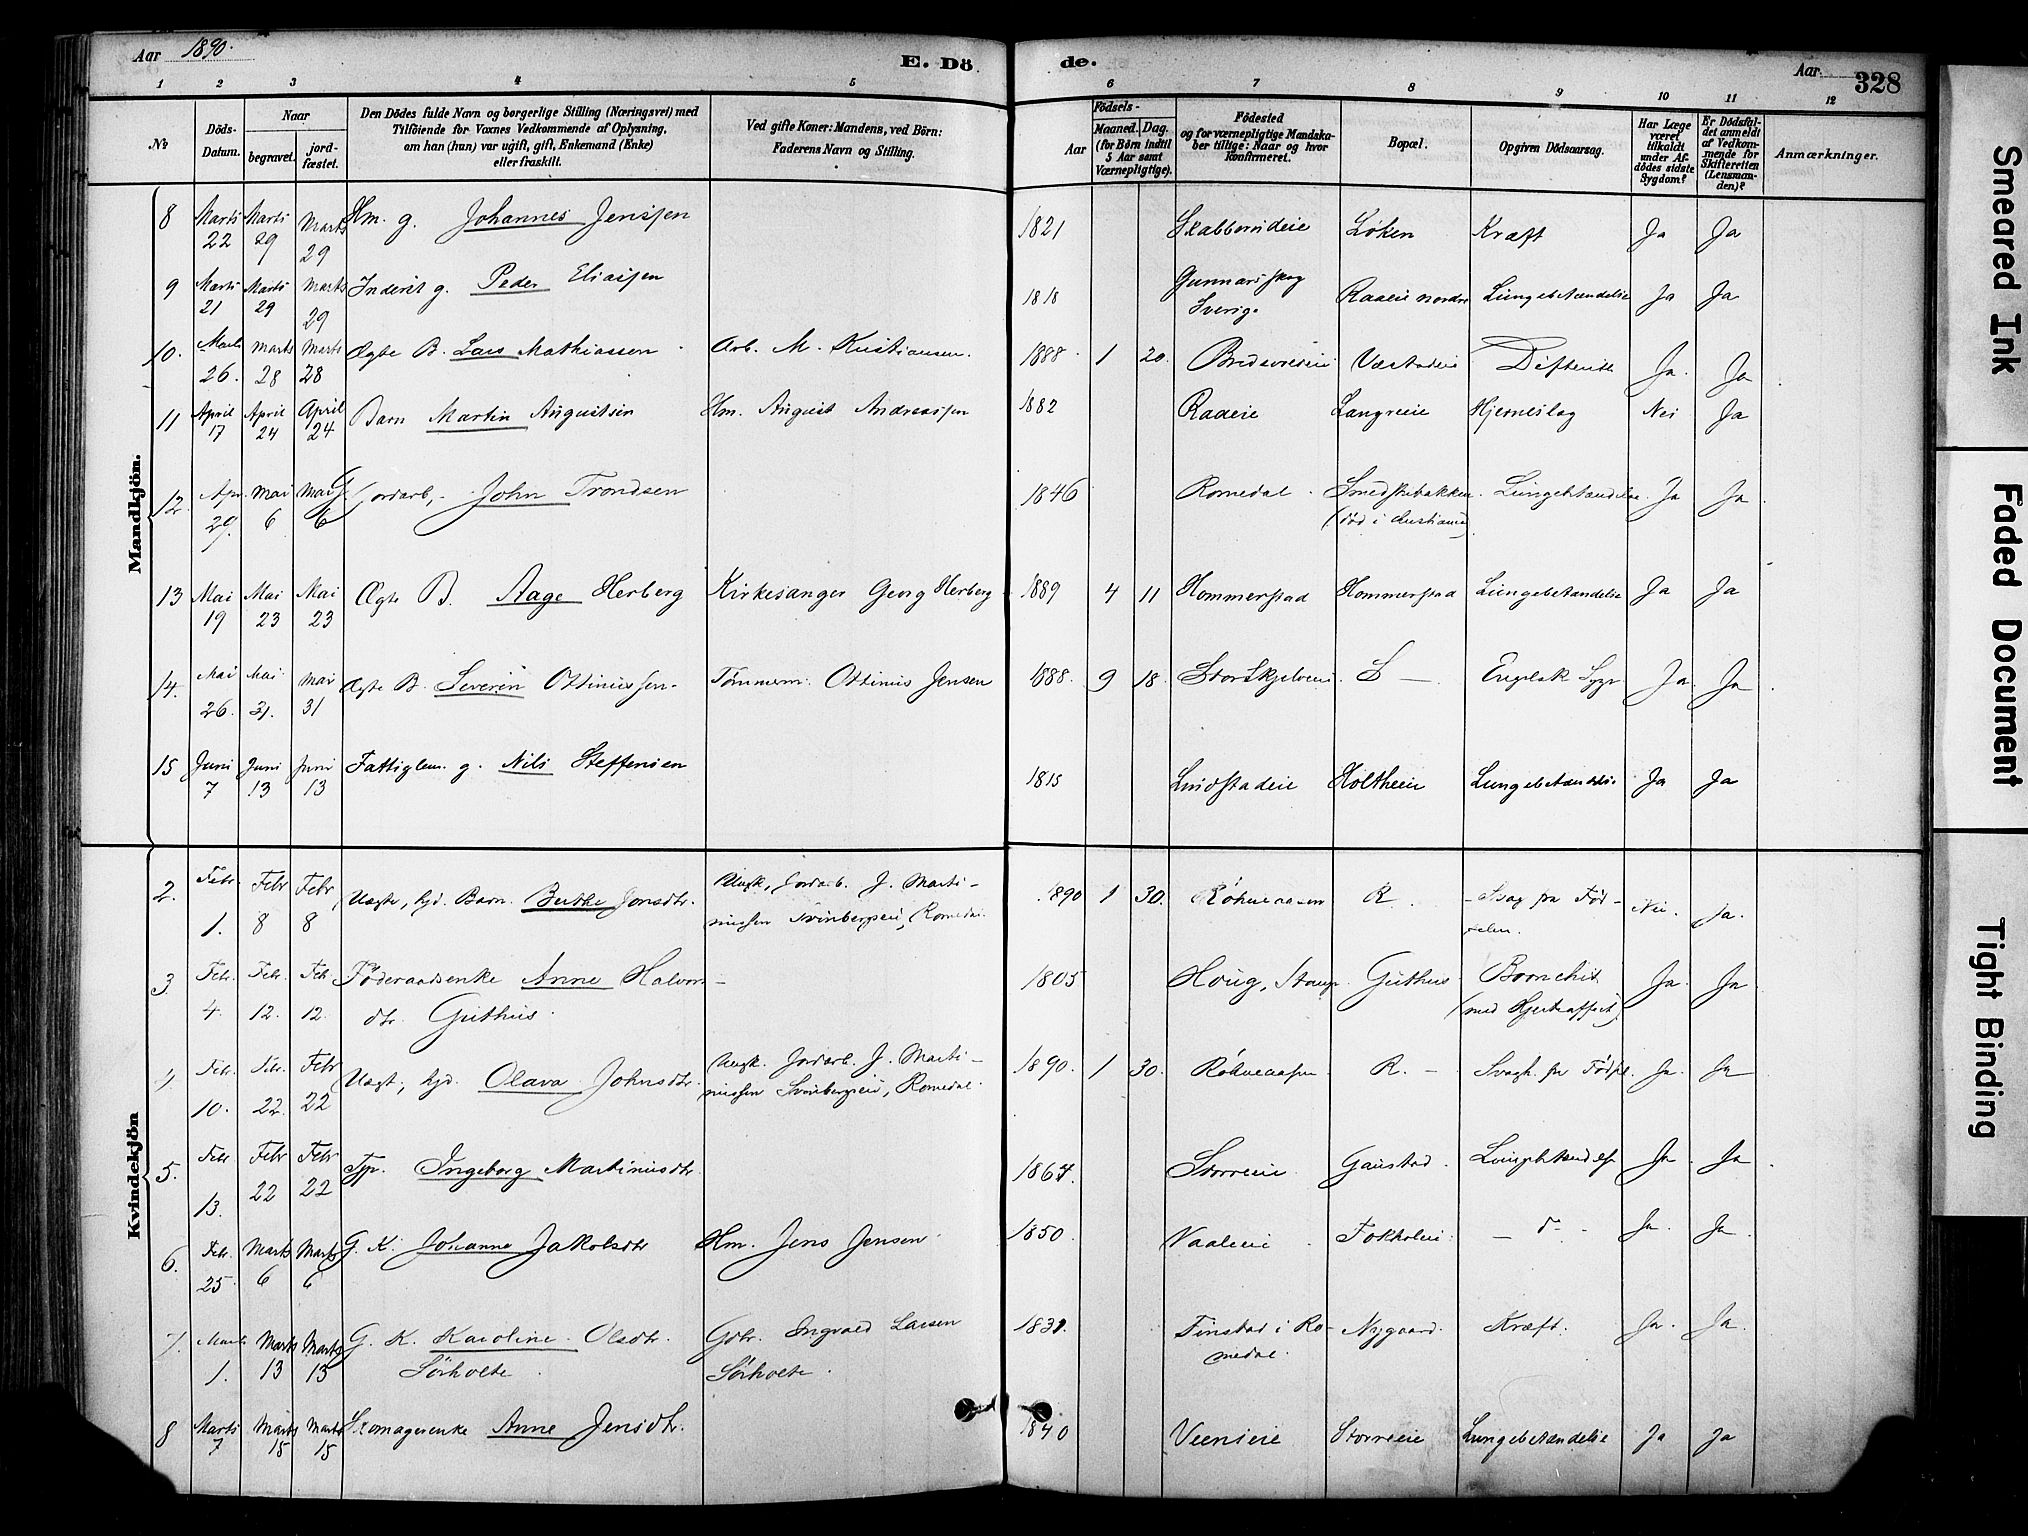 Aar 1890.
E. Dö de.
Aar 328
1 2 3 4 5 6 7 8 9 10 11 12
No
Döds-Datum.
Naar
begravet.
jord-fæstet.
Den Dödes fulde Navn og borgerlige Stilling (Næringsvei) med
Tilföiende for Voxnes Vedkommende af Oplysning,
om han (hun) var ugift, gift, Enkemand (Enke)
eller fraskilt.
Ved gifte Koner: Mandens, ved Börn:
Faderens Navn og Stilling.
Födsels-
Aar
Maaned. Dag.
(for Börn indtil
5 Aar samt
Værnepligtige).
Födested
og for værnepligtige Mandska-
ber tillige: Naar og hvor
konfirmeret.
Bopæl.
Opgiven Dödsaarsag.
Har Læge
været
tilkaldt
under Af-
dödes sidste
Sygdom?
Er Dödsfal-
det anmeldt
af Vedkom-
mende for
Skifteretten
(Lensman-
den)?
Anmærkninger.
Mandkjön.
8 Marts 22 Marts 29 Marts 29 Hm. g. Johannes Jenssen 1821 Skabberudeie Løken Kræft Ja Ja
9 Marts 21 Marts 29 Marts 29 Inderst g. Peder Eliassen 1818 Gunnarsskog Sverige Raaeie nordre Lungebetændelse Ja Ja
10. Marts 26. Marts 28 Marts 28 Ægte B. Lars Mathiassen Arb. M. Kristiansen. 1888 1 20. Difterit Ja. Ja
11 April 17 April 24 April 24 Barn Martin Augustsen Hm. August Andreassen 1882 Raaeie Langreie Hjerneslag Nei Ja
12. Apr. 29. Mai 6 Mai 6 Jordarb. John Trondsen 1846 Romedal. Smedstubakken (död i Kristiania) Lungebetændelse. Ja Ja.
13 Mai 19 Mai 23 Mai 23 Ægte B. Aage Herberg Kirkesanger Georg Herberg 1889 4 11 Hommerstad Hommerstad Lungebetændelse Ja Ja
14. Mai 26. Mai 31. Mai 31 Ægte B. Severin Ottinussen. Tømmerm. Ottinus Jensen 1888. 9 18. S — Engelsk Syge Ja. Ja
15 Juni 7 Juni 13 Juni 13 Fattiglem. g. Nils Steffensen 1815 Lindstadeie Holtheeie Lungebetændelse Ja Ja
Kvindekjön
2. Febr. 1. Febr 8 Febr 8 Uægte, hjd. Barn. Berthe Jonsdtr. Ungk. Jordarb. J. Marti-
nussen Svinbergseie, Romedal. 1890 1 30. Røhneaasen R. Svag fra Fød-
selen. Nei. Ja.
3. Febr. 4. Febr. 12. Feb. 12 Föderaadsenke Anne Halvors-
dtr. Guthus. 1805 Houg, Stange. Guthus Bronchit
(med Hjerteaffect) Ja Ja
4. Febr. 10. Febr. 22. Febr 22 Uægt., hjd. Olava Johnsdtr. Ungk. Jordarb. J. Marti-
nussen Svinbergseie, Romedal. 1890. 1 30. Røhneaasen R. — Svagh. fra Fødsel. Ja. Ja
5. Febr. 13. Febr 22 Febr 22 Tjp. Ingeborg Martinusdtr. 1864. Storreeie Gaustad. Lungebetændelse Ja. Ja
6. Febr. 25. Marts 6 Marts 6 G. K. Johanne Jakobsdtr Hm. Jens Jensen 1850. Vaaleeie Fokholeie — d — Ja. Ja.
7. Marts 1. Marts 13 Marts 13 G. K. Karoline Olsdtr.
Sörholte. Gdbr. Ingvald Larsen
Sörholte. Finstad i Ro-
medal. Nygaard. Kræft. Ja. Ja.
8 Marts 7 Marts 15 Marts 15 Skomagerenke Anne Jensdtr. 1840 Veenseie Storreeie Lungebetændelse Ja Ja
Smeared Ink
Faded Document
Tight Binding